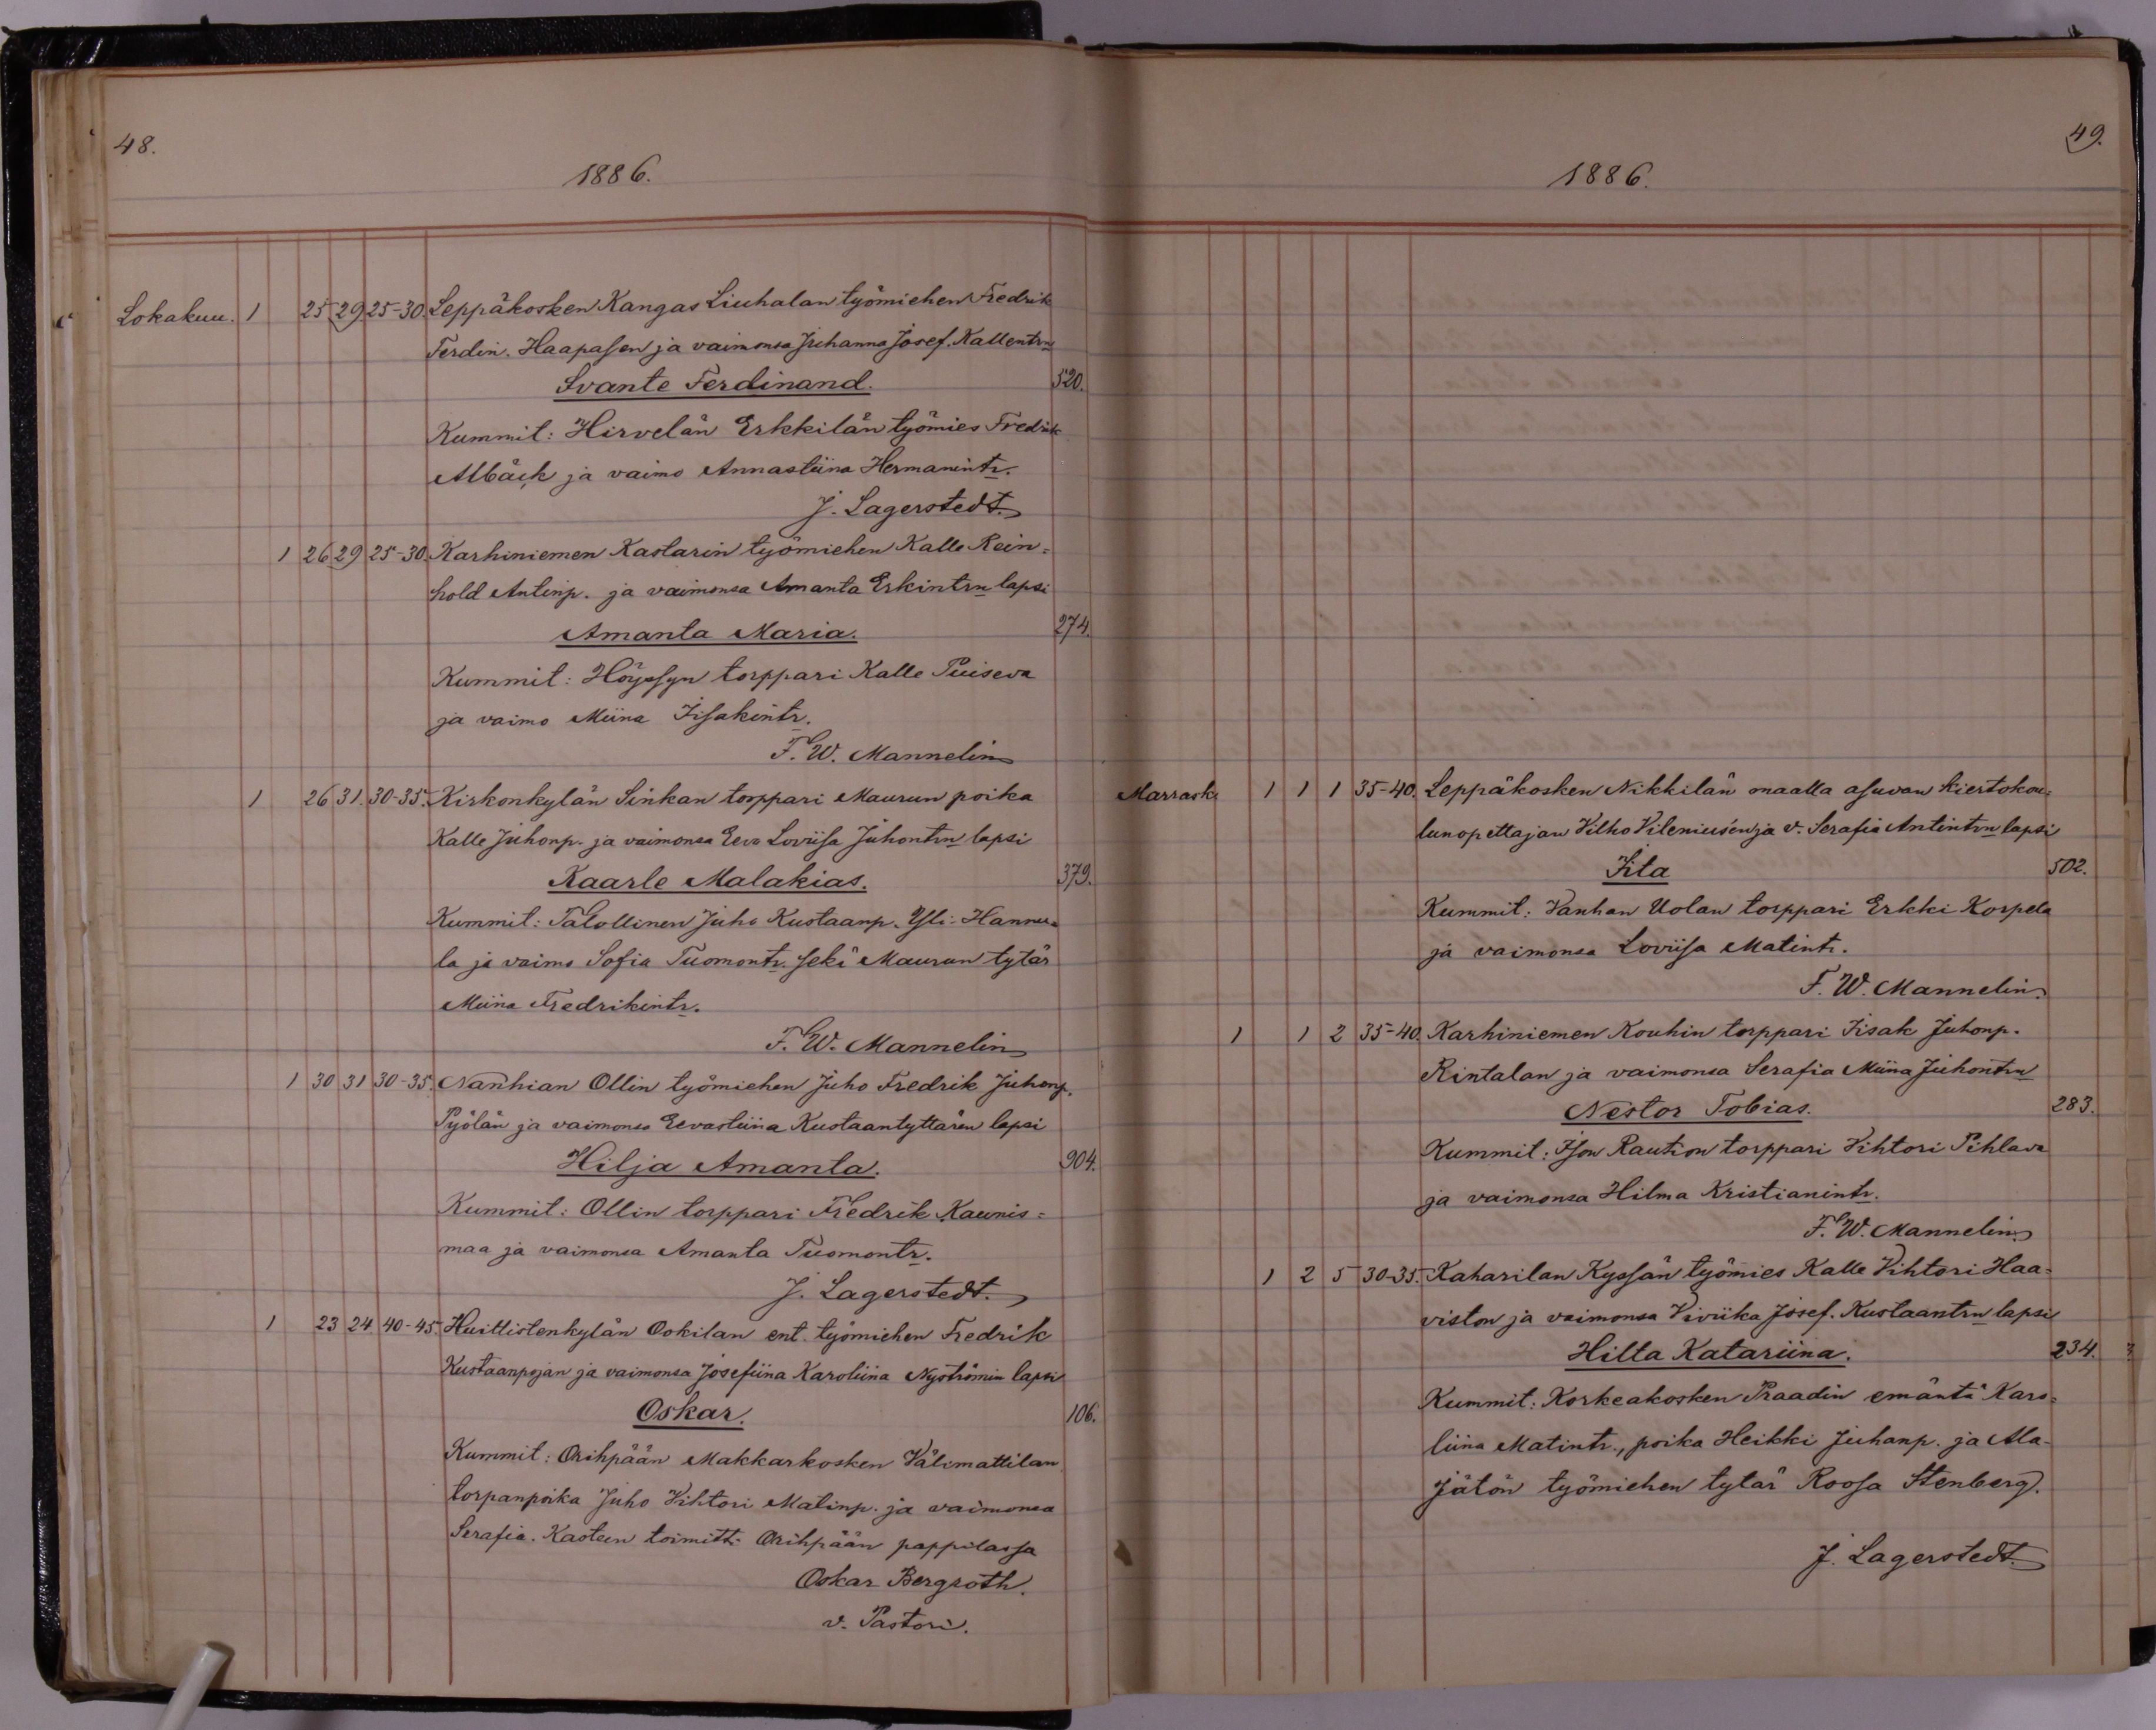 48.
1886.
Lokakuu. 1 25 29 25-30. Leppäkosken Kangas Liuhalan työmiehen Fredrik
Ferdin. Haapasen ja vaimonsa Juhanna Josef. Kallentrn
Svante Ferdinand. 520.
Kummit: Hirvelän Erkkilän työmies Fredrik
Albäck ja vaimo Annastiina Hermanintr.
J. Lagerstedt.
1 26 29 25-30. Karhiniemen Kastarin työmiehen Kalle Rein=
hold Antinp. ja vaimonsa Amanta Erkintrn lapsi
Amanta Maria. 274.
Kummit: Höyssyn torppari Kalle Puiseva
ja vaimo Miina Iisakintr.
F. W. Mannelin
1 26 31. 30-35. Kirkonkylän Sinkan torppari Maurun poika
Kalle Juhonp. ja vaimonsa Eeva Loviisa Juhontrn lapsi
Kaarle Malakias. 379.
Kummit: Talollinen Juho Kustaanp. Yli-Hannu=
la ja vaimo Sofia Tuomontr. sekä Maurun tytär
Miina Fredrikintr.
F. W. Mannelin
1 30 31 30-35. Nanhian Ollin työmiehen Juho Fredrik Juhonp.
Pyölän ja vaimonsa Eevastiina Kustaantyttären lapsi
Hilja Amanta. 904.
Kummit: Ollin torppari Fredrik Kaunis=
maa ja vaimonsa Amanta Tuomontr.
J. Lagerstedt.
1 23 24 40-45. Huittistenkylän Ookilan ent. työmiehen Fredrik
Kustaanpojan ja vaimonsa Josefiina Karoliina Nyströmin lapsi
Oskar. 106.
Kummit: Orihpään Makkarkosken Välimattilan
torpanpoika Juho Vihtori Matinp. ja vaimonsa
Serafia. Kasteen toimitti Orihpään pappilassa
Oskar Bergroth.
v. Pastori.
49.
1886.
Marrask. 1 1 1 35-40. Leppäkosken Nikkilän maalla asuvan kiertokou=
lunopettajan Vilho Vileniusen ja v. Serafia Antintrn lapsi
Iita 502.
Kummit: Vanhan Uolan torppari Erkki Korpela
ja vaimonsa Loviisa Matintr.
F. W. Mannelin.
1 1 2 35-40. Karhiniemen Kouhin torppari Iisak Juhonp.
Rintalan ja vaimonsa Serafia Miina Juhontrn
Nestor Tobias. 283.
Kummit: Ison Raution torppari Vihtori Pihlava
ja vaimonsa Hilma Kristianintr.
F. W. Mannelin.
1 2 5 30-35. Kaharilan Kyssän työmies Kalle Vihtori Haa=
viston ja vaimonsa Viviika Josef. Kustaantrn lapsi
Hilta Katariina. 234.
Kummit: Korkeakosken Praadin emäntä Karo=
liina Matintr., poika Heikki Juhanp. ja Ala-
jätön työmiehen tytär Roosa Stenberg.
J. Lagerstedt.